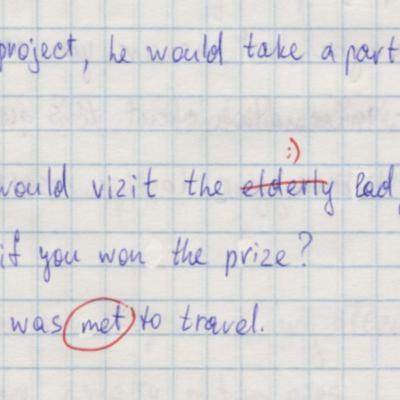 project, he would take a part
:)
would vizit the elderly lady
if you won the prize?
was met to travel.